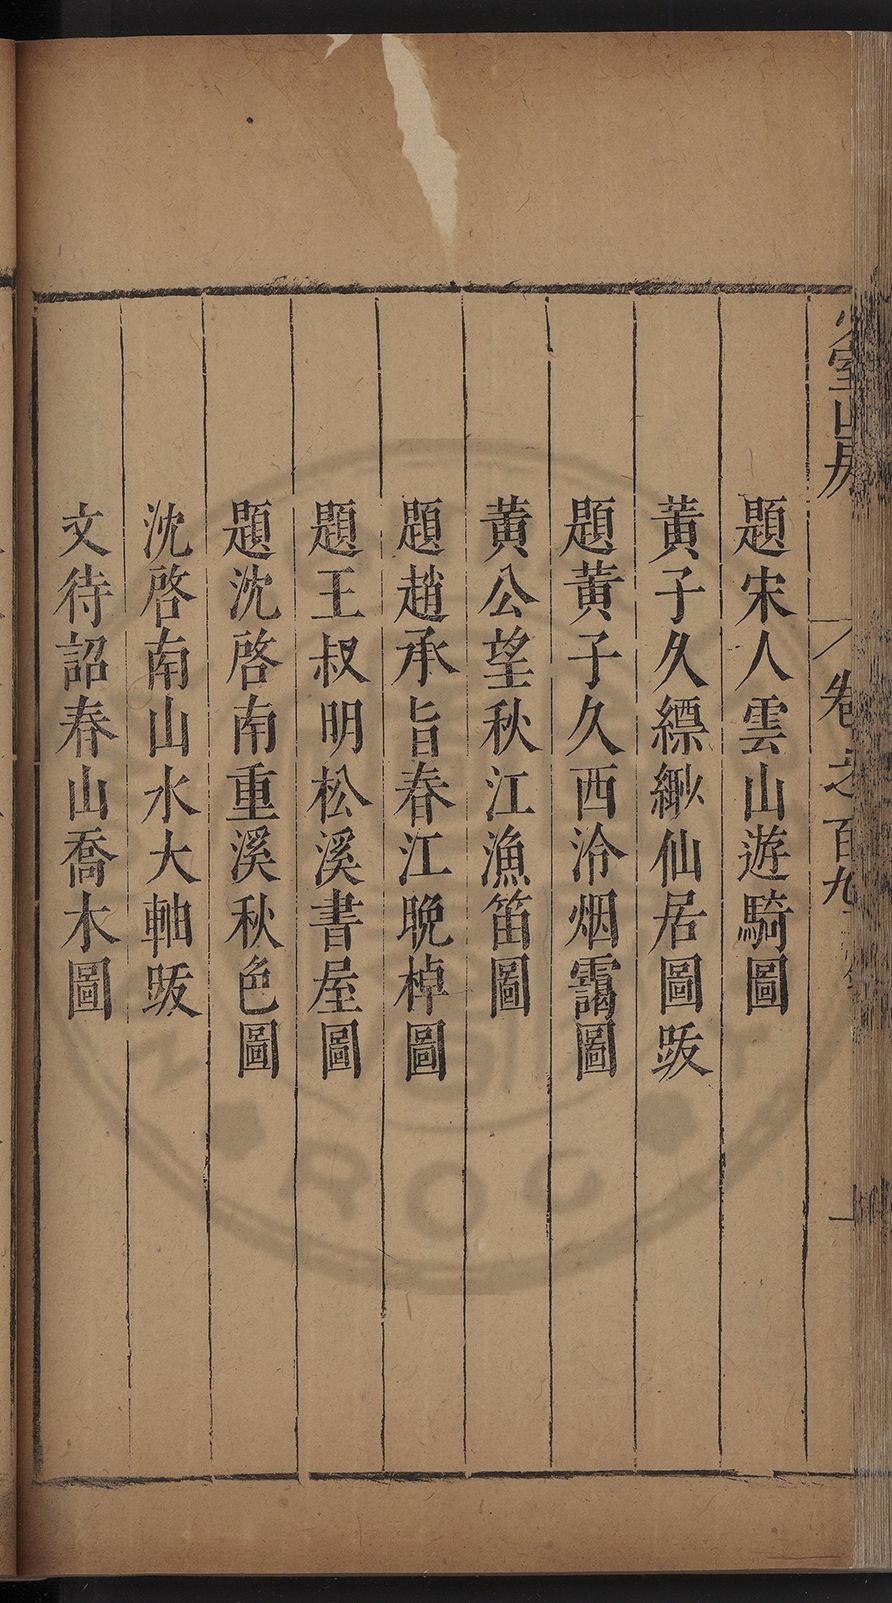 少室山房
卷之百九
一
題宋人雲山遊騎圖
黃子久縹緲仙居圖䟦
題黃子久西泠烟靄圖
黃公望秋江漁笛圖
題趙承旨春江晚棹圖
題王叔明松溪書屋圖
題沈啓南重溪秋色圖
沈啓南山水大軸䟦
文待詔春山喬木圖
ROC